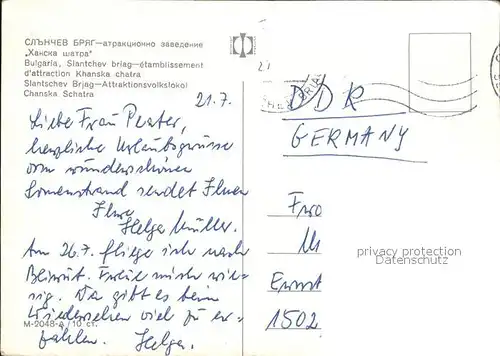 СЛЪНЧЕВ БРЯГ—атракционно заведение
„Ханска шатра"
Bulgaria, Slantchev briag—établissement
d'attraction Khanska chatra
Slantschev Brjag—Attraktionsvolkslokol
Chanska Schatra
21.7.
Liebe Frau
herzliche Urlaubsgrüsse
vom wunderschönen
Sonnenstrand sendet Ihnen
Ihre
Helga Müller.
Am 26.7. fliege ich nach
Beirut. Freue mich rie-
sig. Da gibt es beim
Wiedersehen viel zu er-
zählen. Helga.
M-2048-A/10 ст.
DDR
GERMANY
Frau
M
Ernst
1502
privacy protection
Datenschutz